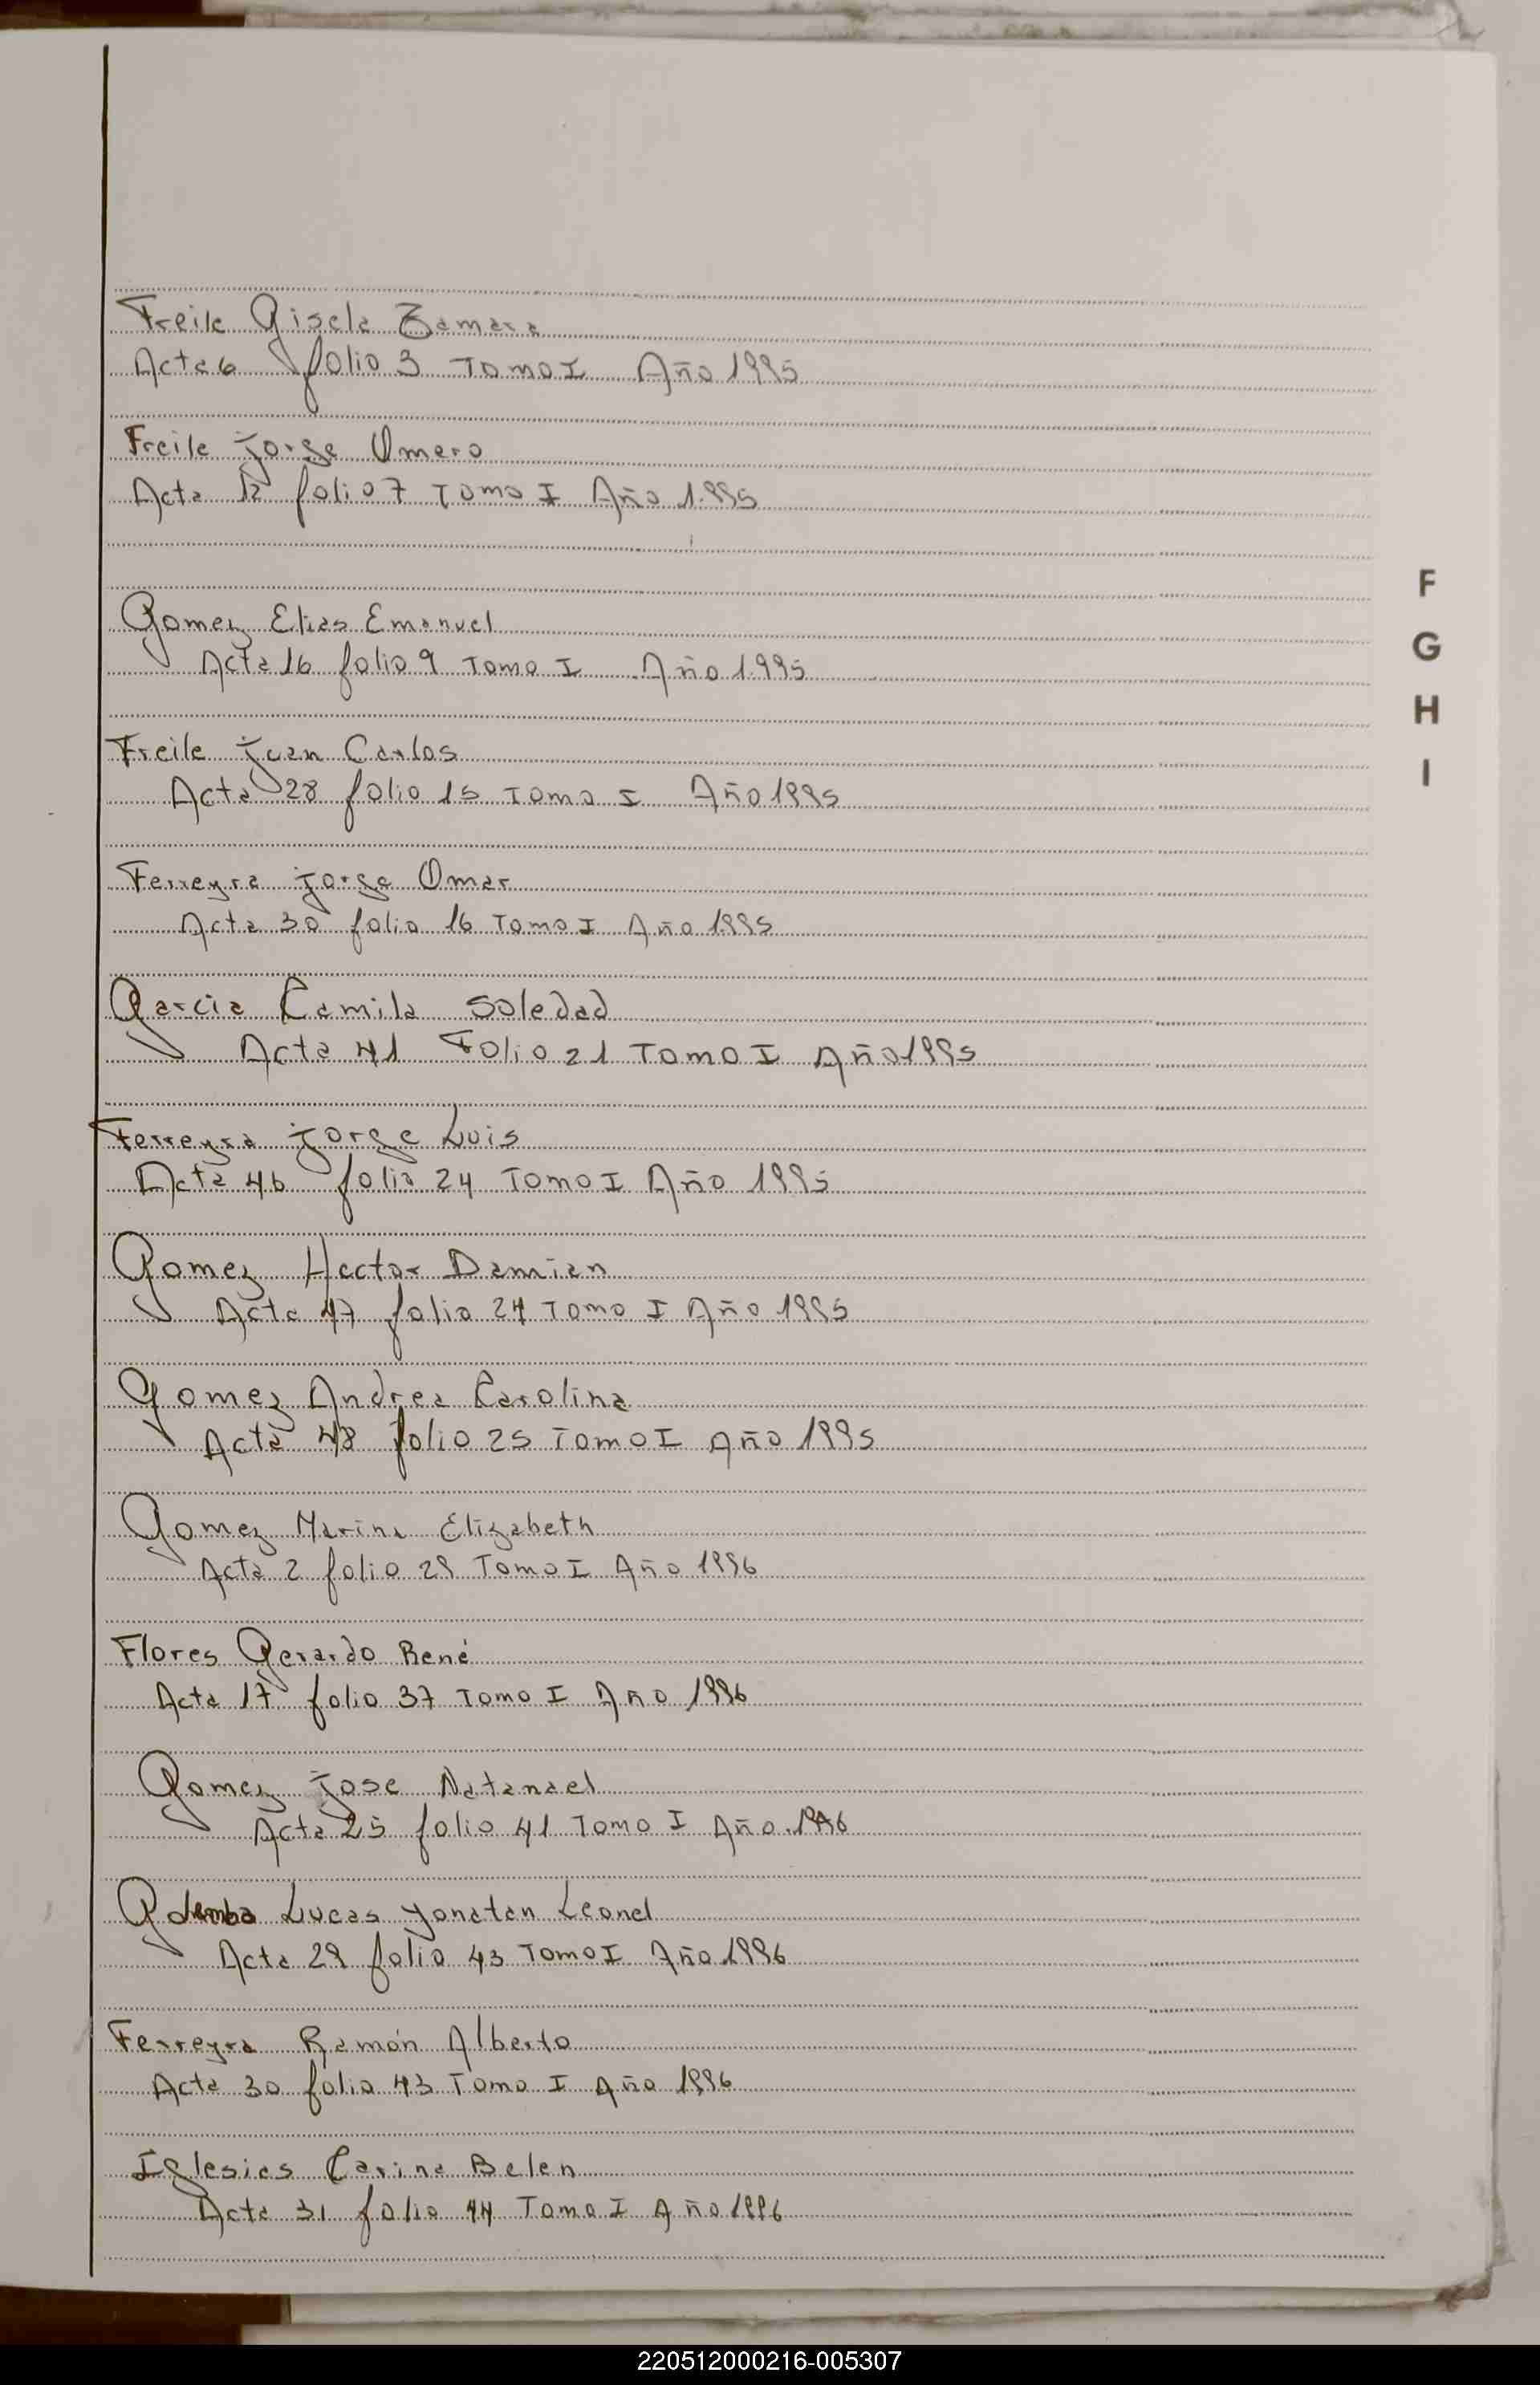 Freile Gisela Tamara
Acta 6 folio 3 Tomo I Año 1995
Freile Jorge Omero
Acta 12 folio 7 Tomo I Año 1.995
Gomez Elias Emanuel
Acta 16 folio 9 Tomo I Año 1.995
Freile Juan Carlos
Acta 28 folio 15 Tomo I Año 1995
Ferreyra Jorge Omar
Acta 30 folio 16 Tomo I Año 1995
Garcia Camila Soledad
Acta 41 Folio 21 Tomo I Año 1995
Ferreyra Jorge Luis
Acta 46 folio 24 Tomo I Año 1995
Gomez Hector Damian
Acta 47 folio 24 Tomo I Año 1995
Gomez Andrea Carolina
Acta 48 folio 25 Tomo I Año 1995
Gomez Marina Elizabeth
Acta 2 folio 29 Tomo I Año 1996
Flores Gerardo René
Acta 17 folio 37 Tomo I Año 1996
Gomez Jose Natanael
Acta 25 folio 41 Tomo I Año 1996
Lucas Yonatan Leonel
Acta 29 folio 43 Tomo I Año 1996
Ferreyra Ramón Alberto
Acta 30 folio 43 Tomo I Año 1996
Iglesias Carina Belen
Acta 31 folio 44 Tomo I Año 1996
F
G
H
I
220512000216-005307